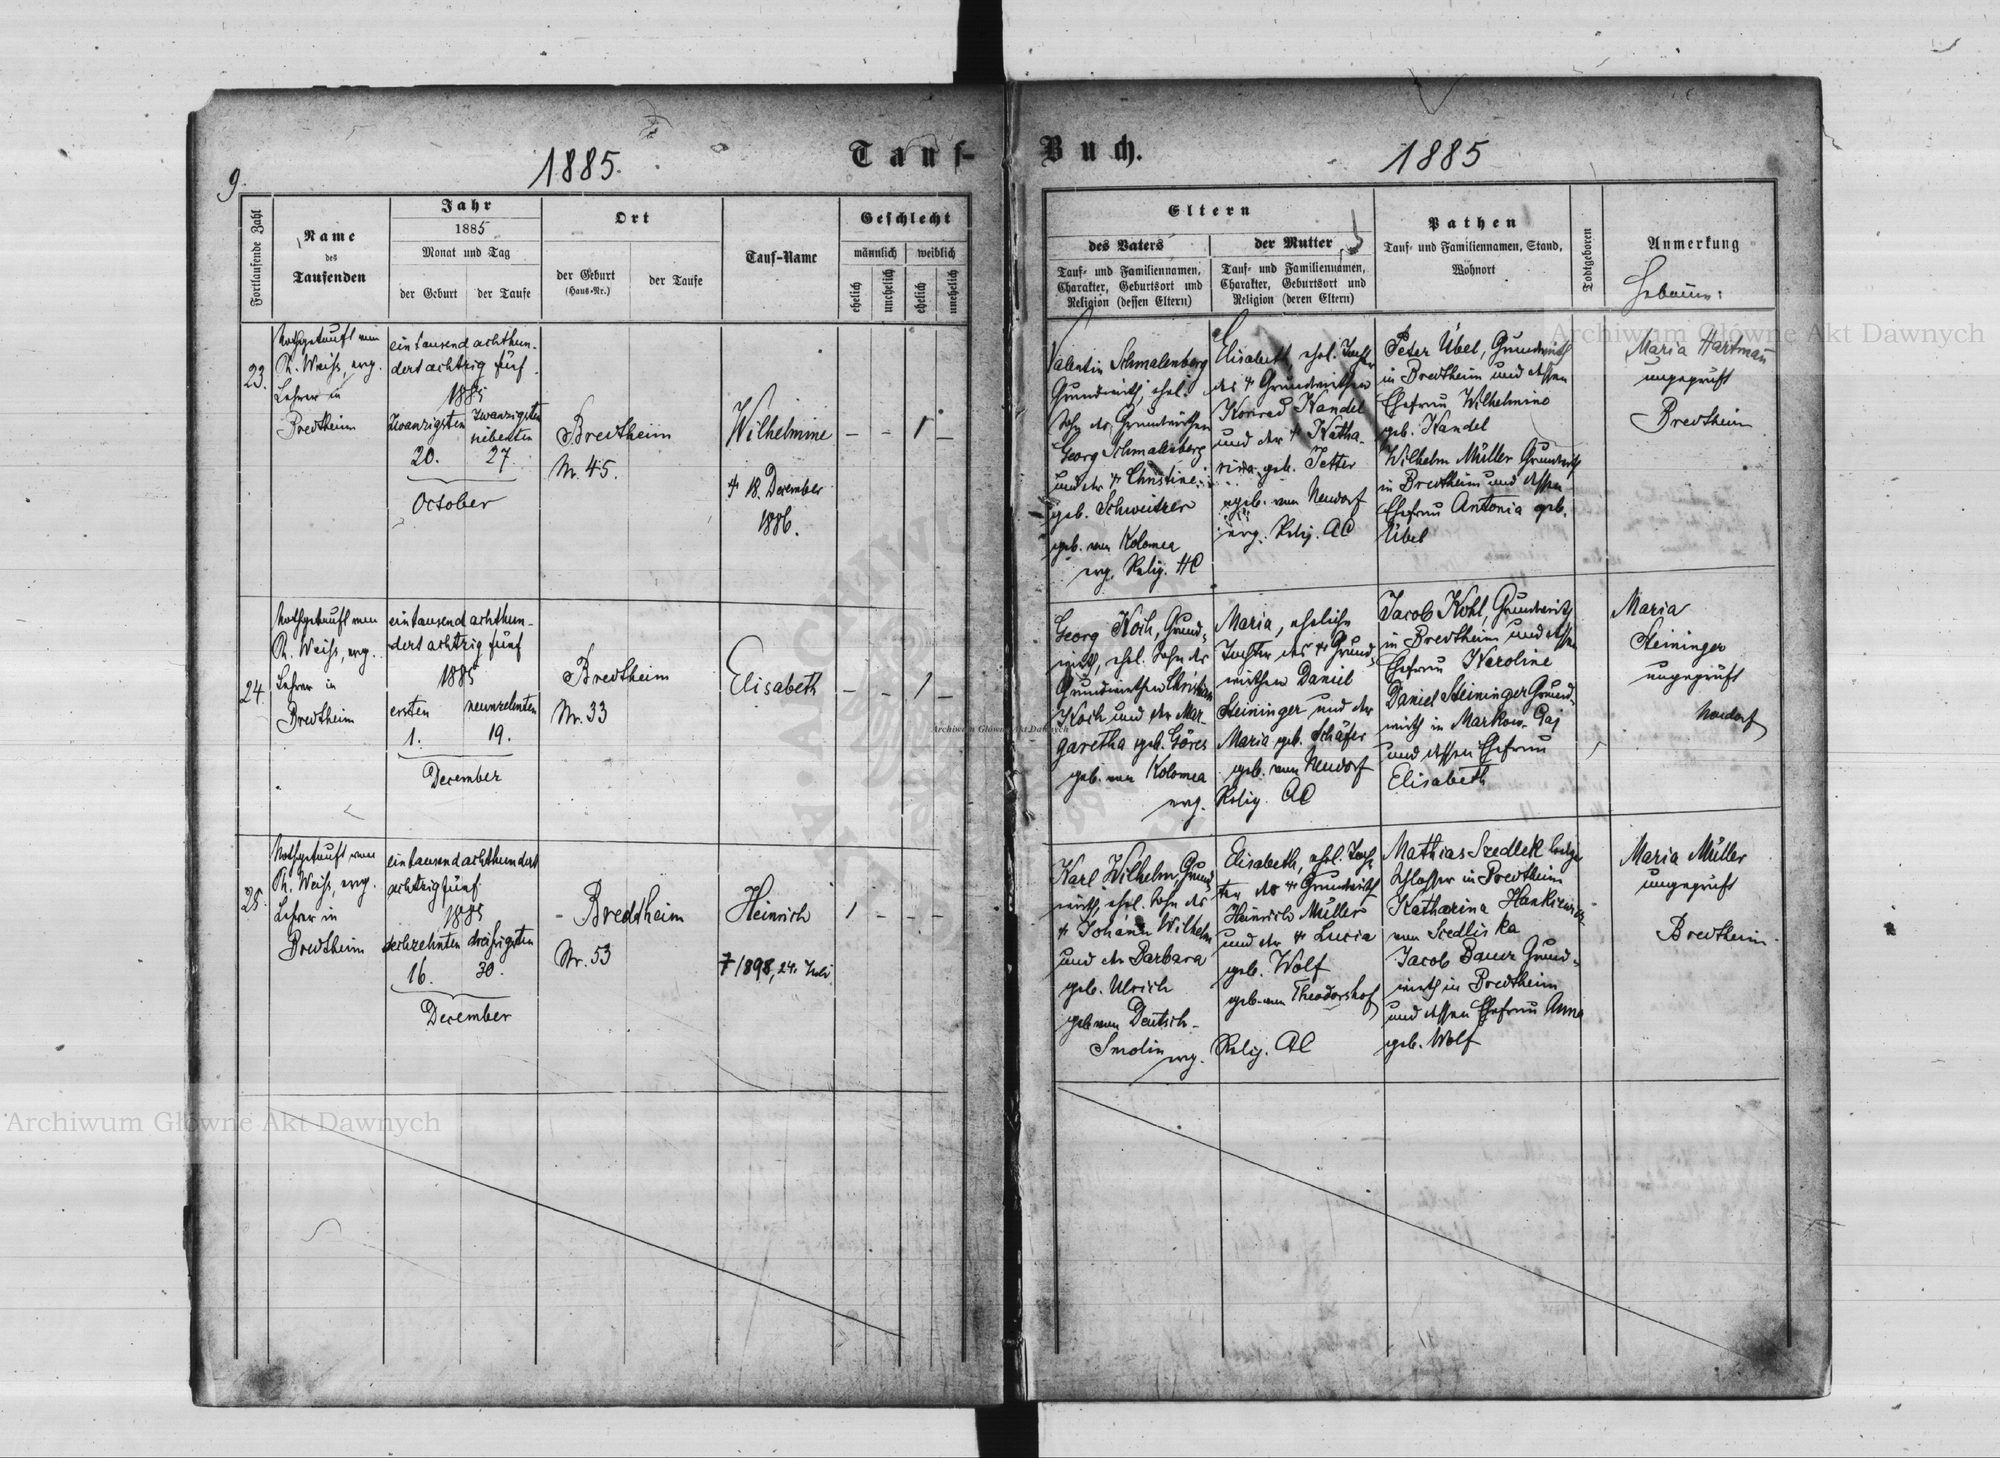 9.
1885.
Tauf-
Buch.
1885
Fortlaufende Zahl
Name
des
Taufenden
Jahr
1885
Monat und Tag
der Geburt
der Taufe
Ort
der Geburt
(Haus-Nr.)
der Taufe
Tauf-Name
Geschlecht
männlich
weiblich
ehelich
unehelich
ehelich
unehelich
Eltern
des Vaters
Tauf- und Familiennamen,
Charakter, Geburtsort und
Religion (dessen Eltern)
der Mutter
Tauf- und Familiennamen,
Charakter, Geburtsort und
Religion (deren Eltern)
Pathen
Tauf- und Familiennamen, Stand,
Wohnort
Todtgeboren
Anmerkung
Hebamme:
23.
Nothgetauft von
Ph. Weiss, evg.
Lehrer in
Bredtheim
ein tausend achthun-
dert achtzig fünf
1885
zwanzigsten
20.
zwanzigsten
siebenten
27.
October
Bredtheim
Nr. 45.
Wilhelmine
+ 18. December
1886.
– – 1 –
Valentin Schmalenberg
Grundwirth, ehel.
Sohn des Grundwirthen
Georg Schmalenberg
und der + Christine
geb. Schweitzer
geb. von Kolomea
evg. Relig. HC
Elisabeth, ehel. Tochter
des + Grundwirthen
Konrad Kandel
und der + Katha-
rina geb. Jetter
geb. von Neudorf
evg. Relig. AC
Peter Übel, Grundwirth
in Bredtheim und dessen
Ehefrau Wilhelmine
geb. Kandel
Wilhelm Müller Grundwirth
in Bredtheim und dessen
Ehefrau Antonia geb.
Übel
Maria Hartmann
ungeprüft
Bredtheim
24.
Nothgetauft von
Ph. Weiss, evg.
Lehrer in
Bredtheim
ein tausend achthun-
dert achtzig fünf
1885
ersten
1.
neunzehnten
19.
December
Bredtheim
Nr. 33
Elisabeth
– – 1 –
Georg Koch, Grund-
wirth, ehel. Sohn des
Grundwirthen Christian
Koch und der Mar-
garetha geb. Göres
geb. von Kolomea
evg.
Maria, eheliche
Tochter des + Grund-
wirthen Daniel
Steininger und der
Maria geb. Schäfer
geb. von Neudorf
Relig. AC
Jacob Kohl, Grundwirth
in Bredtheim und dessen
Ehefrau Karoline
Daniel Steininger Grund-
wirth in Markow-Gaj
und dessen Ehefrau
Elisabeth
Maria
Steininger
ungeprüft
Neudorf
25.
Nothgetauft von
Ph. Weiss, evg.
Lehrer in
Bredtheim
ein tausend achthundert
achtzig fünf
1885
sechzehnten
16.
dreißigsten
30.
December
Bredtheim
Nr. 53
Heinrich
+ 1898, 24. Juli
1 – – –
Karl Wilhelm, Grund-
wirth, ehel. Sohn des
+ Johann Wilhelm
und der Barbara
geb. Ulrich
geb von Deutsch-
Smolin
evg.
Elisabeth, ehel. Toch-
ter des + Grundwirth
Heinrich Müller
und der + Lucia
geb. Wolf
geb. von Theodorshof
Relig. AC
Mathias Szedlek
Schlosser in Bredtheim
Katharina Hankiewicz
von Siedliska
Jacob Bauer Grund-
wirth in Bredtheim
und dessen Ehefrau Anna
geb. Wolf
Maria Müller
ungeprüft
Bredtheim
Archiwum Główne Akt Dawnych
Archiwum Główne Akt Dawnych
Archiwum Główne Akt Dawnych